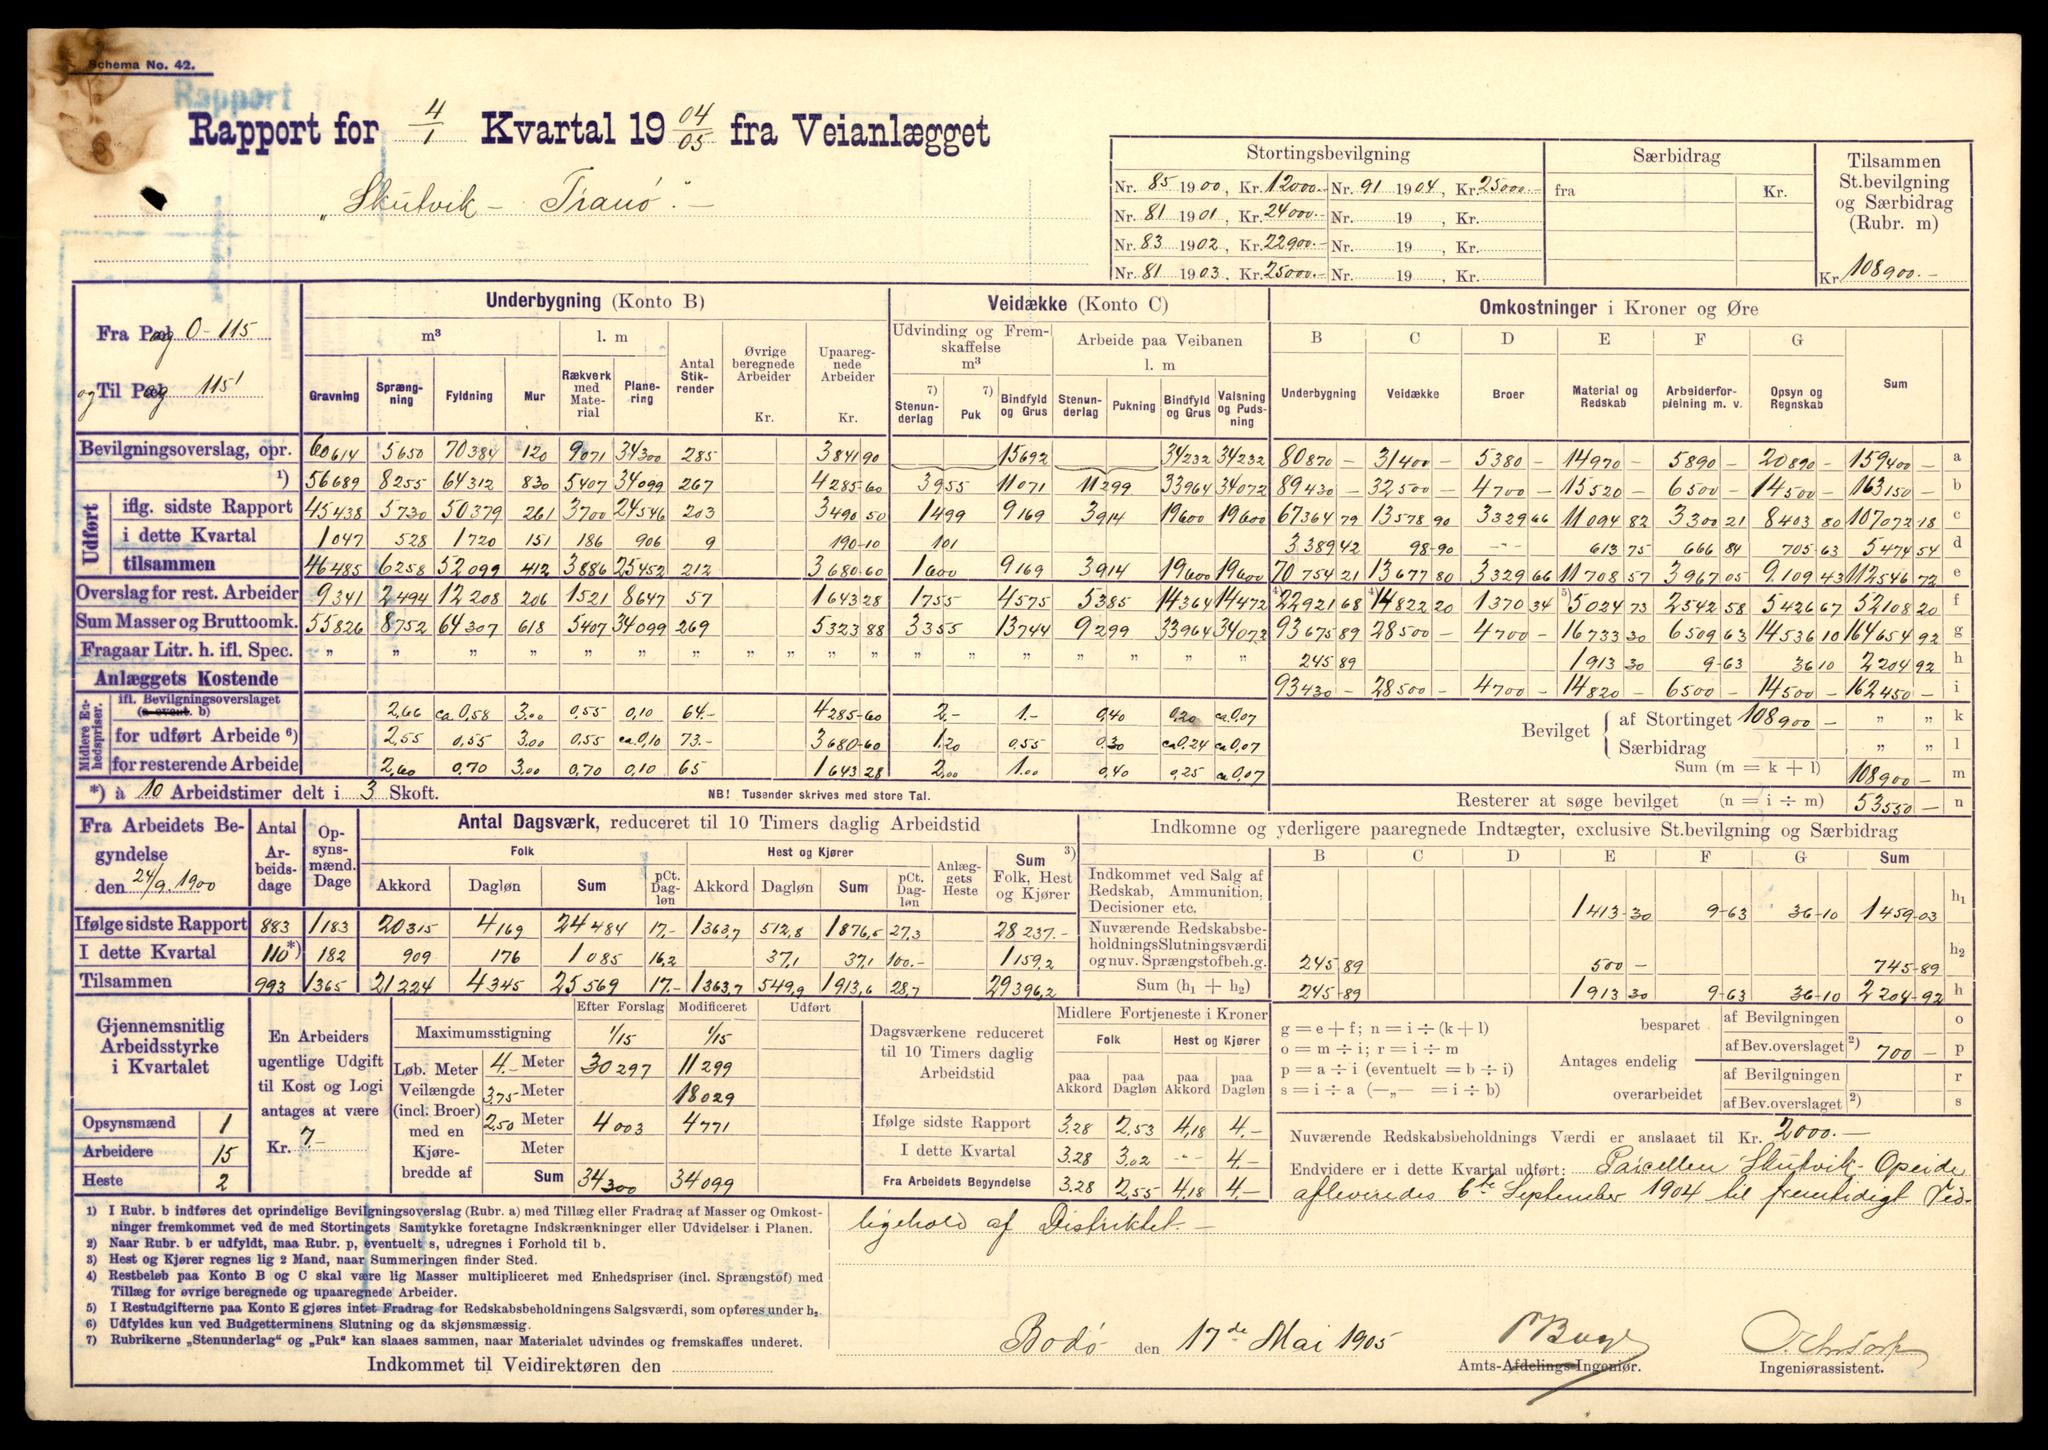 Schema No. 42.
Rapport
Rapport for 4/1 Kvartal 19 04/05 fra Veianlægget
„Skutvik – Tranö“ –
Stortingsbevilgning
Særbidrag
Tilsammen St.bevilgning og Særbidrag (Rubr. m)
Nr. 85 1900, Kr. 12000.- Nr. 91 1904, Kr. 25000.- fra Kr.
Nr. 81 1901, Kr. 24000.- Nr. 19 , Kr.
Nr. 83 1902, Kr. 22900.- Nr. 19 , Kr.
Nr. 81 1903, Kr. 25000.- Nr. 19 , Kr.
Kr. 108900.-
Fra Pæg 0-115
og Til Pæg 115¹
Underbygning (Konto B) Veidække (Konto C) Omkostninger i Kroner og Øre
m³ l. m Antal Stikrender Øvrige beregnede Arbeider Kr. Upaaregnede Arbeider Kr.
Udvinding og Fremskaffelse m³ Arbeide paa Veibanen l. m
B C D E F G
Gravning Sprængning Fyldning Mur Rækverk med Material Planering
7) Stenunderlag 7) Puk Bindfyld og Grus Stenunderlag Pukning Bindfyld og Grus Valsning og Pudsning
Underbygning Veidække Broer Material og Redskab Arbeiderforpleining m. v. Opsyn og Regnskab Sum
Bevilgningsoverslag, opr. 60614 5650 70384 120 9071 34300 285 3841 90 15692 34232 34232 80870 - 31400 - 5380 - 14970 - 5890 - 20890 - 159400 - a
1) 56689 8255 64312 830 5407 34099 267 4285-60 3955 11071 11299 33964 34072 89430 - 32500 - 4700 - 15520 - 6500 - 14500 - 163150 - b
Udført
iflg. sidste Rapport 45438 5730 50379 261 3700 24546 203 3490 50 1499 9169 3914 19600 19600 67364 79 13578 90 3329 66 11094 82 3300 21 8403 80 107072 18 c
i dette Kvartal 1047 528 1720 151 186 906 9 190-10 101 3389 42 98-90 --- 613 75 666 84 705 63 5474 54 d
tilsammen 46485 6258 52099 412 3886 25452 212 3680-60 1600 9169 3914 19600 19600 70754 21 13677 80 3329 66 11708 57 3967 05 9109 43 112546 72 e
Overslag for rest. Arbeider 9341 2494 12208 206 1521 8647 57 1643 28 1755 4575 5385 14364 14472 4) 22921 68 4) 14822 20 1370 34 5) 5024 73 2542 58 5426 67 52108 20 f
Sum Masser og Bruttoomk. 55826 8752 64307 618 5407 34099 269 5323 88 3355 13744 9299 33964 34072 93675 89 28500 - 4700 - 16733 30 6509 63 14536 10 164654 92 g
Fragaar Litr. h. ifl. Spec. „ „ „ „ „ „ „ „ „ „ „ „ „ „ „ „ „ „ 245 89 1913 30 9-63 36 10 2204 92 h
Anlæggets Kostende 93430 - 28500 - 4700 - 14820 - 6500 - 14500 - 162450 - i
Midlere Enhedspriser.
ifl. Bevilgningsoverslaget (a event. b) 2,66 ca 0,58 3,00 0,55 0,10 64.- 4285-60 2.- 1.- 0,40 0,20 ca 0,07
for udført Arbeide 6) 2,55 0,55 3,00 0,55 ca. 0,10 73.- 3680-60 1,20 0,55 0,30 ca 0,24 ca 0,07
for resterende Arbeide 2,60 0,70 3,00 0,70 0,10 65 1643 28 2,00 1,00 0,40 0,25 ca 0,07
Bevilget af Stortinget 108900 - „ „ k
Særbidrag „ „ l
Sum (m = k + l) 108900 - m
*) à 10 Arbeidstimer delt i 3 Skoft. NB! Tusender skrives med store Tal.
Resterer at søge bevilget (n = i ÷ m) 53550 - n
Fra Arbeidets Begyndelse den 24/9 1900
Antal Arbeidsdage
Opsynsmænd. Dage
Antal Dagsværk, reduceret til 10 Timers daglig Arbeidstid
Folk Hest og Kjører Anlæggets Heste Sum 3) Folk, Hest og Kjører
Akkord Dagløn Sum pCt. Dagløn Akkord Dagløn Sum pCt. Dagløn
Ifølge sidste Rapport 883 1183 20315 4169 24484 17.- 1363,7 512,8 1876,5 27,3 28237.-
I dette Kvartal 110 *) 182 909 176 1085 16,2 37,1 37,1 100.- 1159,2
Tilsammen 993 1365 21224 4345 25569 17.- 1363,7 549,9 1913,6 28,7 29396,2
Indkomne og yderligere paaregnede Indtægter, exclusive St.bevilgning og Særbidrag
B C D E F G Sum
Indkommet ved Salg af Redskab, Ammunition, Decisioner etc. 1413-30 9-63 36-10 1459-03 h₁
Nuværende Redskabsbeholdnings Slutningsværdi og nuv. Sprængstofbeh.g. 245 89 500 - 745-89 h₂
Sum (h₁ + h₂) 245-89 1913 30 9-63 36-10 2204-92 h
Gjennemsnitlig Arbeidsstyrke i Kvartalet
Opsynsmænd 1
Arbeidere 15
Heste 2
En Arbeiders ugentlige Udgift til Kost og Logi antages at være Kr. 7.-
Efter Forslag Modificeret Udført
Maximumsstigning 1/15 1/15
Løb. Meter Veilængde (incl. Broer) med en Kjørebredde af
4.- Meter 30297 11299
3,75 Meter 18029
2,50 Meter 4003 4771
Meter
Sum 34300 34099
Dagsværkene reduceret til 10 Timers daglig Arbeidstid
Midlere Fortjeneste i Kroner
Folk Hest og Kjører
paa Akkord paa Dagløn paa Akkord paa Dagløn
Ifølge sidste Rapport 3.28 2,53 4,18 4.-
I dette Kvartal 3.28 3,02 -.- 4.-
Fra Arbeidets Begyndelse 3.28 2,55 4,18 4.-
g = e + f; n = i ÷ (k + l)
o = m ÷ i; r = i ÷ m
p = a ÷ i (eventuelt = b ÷ i)
s = i ÷ a ( — „ — = i ÷ b)
Antages endelig
besparet af Bevilgningen o
af Bev.overslaget 2) 700 - p
overarbeidet af Bevilgningen r
af Bev.overslaget 2) s
Nuværende Redskabsbeholdnings Værdi er anslaaet til Kr. 2000.-
Endvidere er i dette Kvartal udført: Parcellen Skutvik-Opeide
afleveredes 6te September 1904 til fremtidigt Ved-
ligehold af Distriktet. –
1) I Rubr. b indføres det oprindelige Bevilgningsoverslag (Rubr. a) med Tillæg eller Fradrag af Masser og Omkostninger fremkommet ved de med Stortingets Samtykke foretagne Indskrænkninger eller Udvidelser i Planen.
2) Naar Rubr. b er udfyldt, maa Rubr. p, eventuelt s, udregnes i Forhold til b.
3) Hest og Kjører regnes lig 2 Mand, naar Summeringen finder Sted.
4) Restbeløb paa Konto B og C skal være lig Masser multipliceret med Enhedspriser (incl. Sprængstof) med Tillæg for øvrige beregnede og upaaregnede Arbeider.
5) I Restudgifterne paa Konto E gjøres intet Fradrag for Redskabsbeholdningens Salgsværdi, som opføres under h₂.
6) Udfyldes kun ved Budgetterminens Slutning og da skjønsmæssig.
7) Rubrikerne „Stenunderlag“ og „Puk“ kan slaaes sammen, naar Materialet udvindes og fremskaffes underet.
Indkommet til Veidirektøren den
Bodö den 17de Mai 1905
Amts-Afdelings-Ingeniør.
Ingeniørassistent.